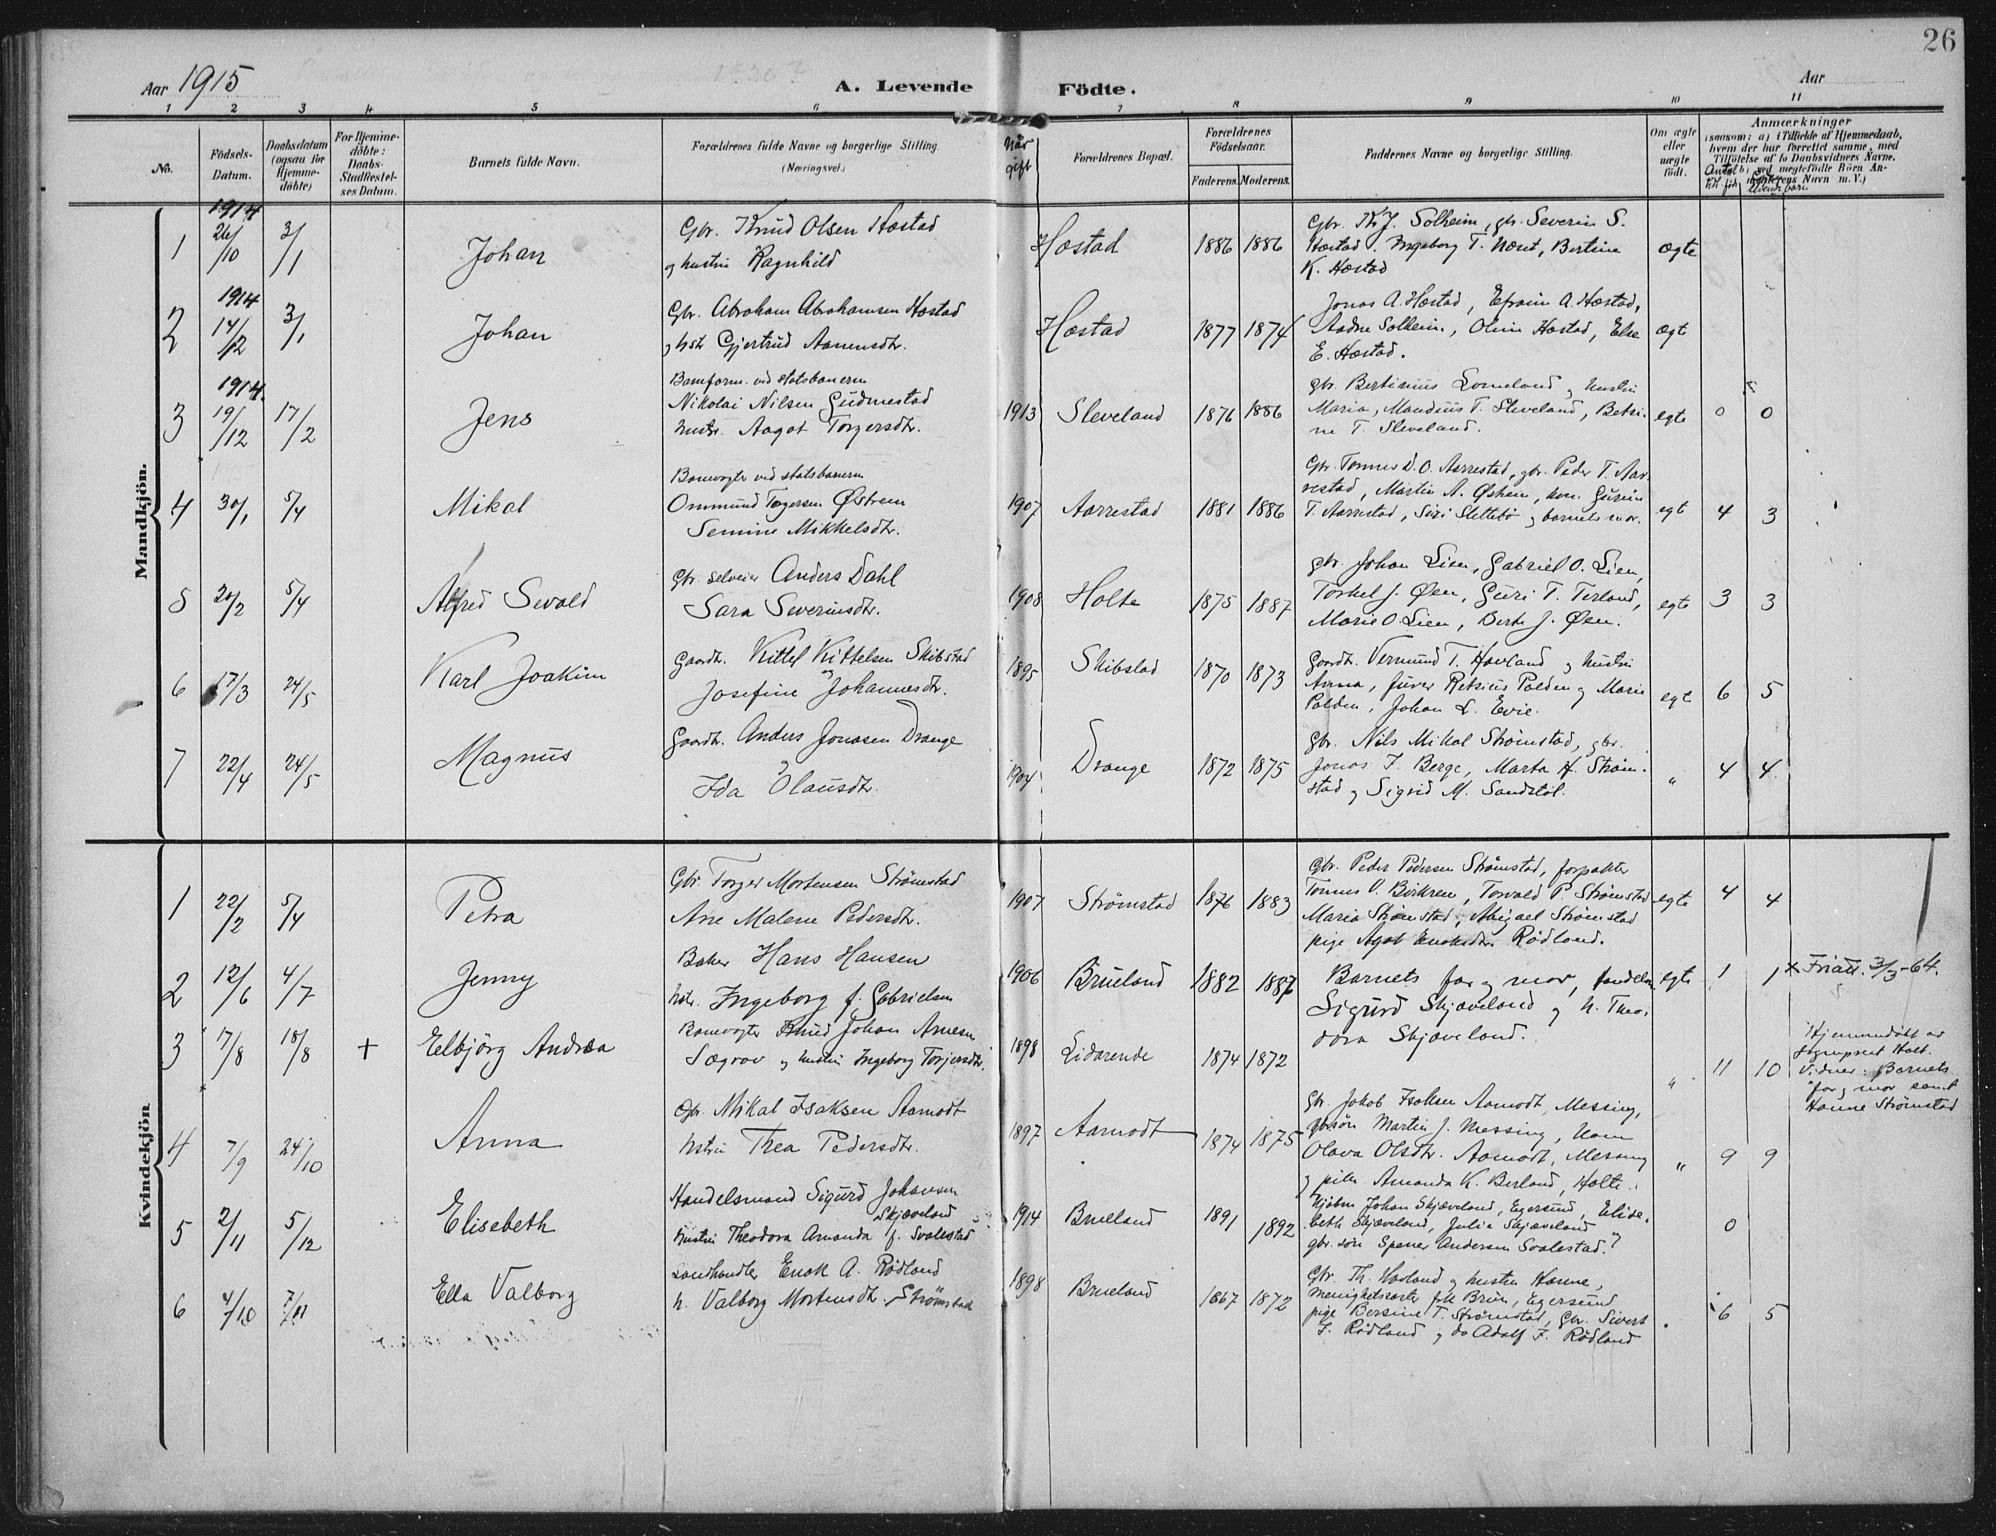 26
Aar 1915
A. Levende
Födte.
Aar
1 2 3 4 5 6 7 8 9 10 11
No.
Födsels-
Datum.
Daabsdatum
(ogsaa for
Hjemme-
döbte)
For Hjemme-
döbte:
Daabs-
Stadfæstel-
ses Datum.
Barnets fulde Navn.
Forældrenes fulde Navne og borgerlige Stilling
(Næringsvei.)
Når
gift
Forældrenes Bopæl.
Forældrenes
Födselsaar.
Faderens. Moderens.
Faddernes Navne og borgerlige Stilling.
Om ægte
eller
uægte
födt.
Anmærkninger
(saasom: a) i Tilfælde af Hjemmedaab,
hvem der har forrettet samme, med
Tilföielse af to Daabsvidners Navne.
b) ved uægtefödte Börn An-
Mandkjön.
1914
1 26/10 3/1 Johan
Gbr. Knud Olsen Hæstad
og hustru Ragnhild
Hæstad 1886 1886
Gbr. Th J. Solheim, gbr. Severin S.
Hæstad, Ingeborg T. Nært, Bertine
K. Hæstad
ægte
1914
2 14/12 3/1 Johan
Gbr. Abraham Abrahamsen Hæstad
og hstr Gjertrud Aanensdtr.
Hæstad 1877 1874
Jonas A. Hæstad, Efraim A. Hæstad,
Aadne Solheim, Oline Hæstad, Else
E. Hæstad.
ægt
1914
3 19/12 17/2 Jens
Baneform. ved statsbanerne
Nikolai Nilsen Gudmestad
hustr. Aagot Torgersdtr.
1913 Sleveland 1876 1886
gbr. Bertinius Lomeland og hustru
Maria, Mandius T. Sleveland, Betzi-
ne T. Sleveland.
egte 0 0
4 30/1 5/4 Mikal
Banevogter ved statsbanerne
Ommund Torgersen Østrem
Semine Mikkelsdtr.
1907 Aarrestad 1881 1886
Gbr. Tønnes D. O. Aarrestad, gbr. Peder T. Aar-
restad, Martin A.
T. Aarrestad, Siri Slettebø og barnets mor.
egt 4 3
5 20/2 5/4 Alfred Sevald
Gbr. selveier Anders Dahl
Sara Severinsdtr.
1908 Holte 1875 1887
gbr. Johan Lien, Gabriel O. Lien,
Torkel J. Øen, Guri T. Terland,
Marie O. Lien, Berte J. Øen.
egte 3 3
6 17/3 24/5 Karl Joakim
Gaardbr. Kittel Kittelsen Skibstad
og
Josefine Johannesdtr.
1895 Skibstad 1870 1873
Gaardbr. Vermund T. Hovland og hustru
Anna, Retzius Polden og Marie
Polden, Johan L. Evie.
egt 6 5
7 22/4 24/5 Magnus
Gaardbr. Anders Jonasen Drange
og
Ida Olausdtr.
1904 Drange 1872 1875
Gbr. Nils Mikal Strømstad, gbr.
Jonas J. Berge, Marta H. Strøm-
stad og Sigrid M. Sandstøl.
" 4 4
Kvindekjön
1 22/2 5/4 Petra
Gbr. Torger Mortensen Strømstad
Ane Malene Pedersdtr.
1907 Strømstad 1876 1883
Gbr. Peder Pedersen Strømstad, forpakter
Tønnes O. Birkrem, Torvald P. Strømstad
Maria Strømstad, Abigael Strømstad
pige Agot Enoksdtr. Rødland.
egte 4 4
2 12/6 4/7 Jenny
Baker Hans Hansen
hstr. Ingeborg f. Gabrielsen
1906 Brueland 1882 1887
Barnets far og mor, handelsm
Sigurd Skjæveland og h. Theo-
dora Skjæveland.
egte 1 1
x Friatt. 3/3-64.
3 17/8 18/8 + Eelbjörg Andrea
Banevogter Knud Johan Arnesen
Sægrov og hustru Ingeborg Torjersdtr.
1898 Lidarende 1874 1872
" 11 10
Hjemmedøbt av
sogneprest Holt.
Vidner: Barnets
far og mor samt
Hanne Strømstad
4 7/9 24/10 Anna
Gbr. Mikal Isaksen Aamodt
hustru Thea Pedersdtr.
1897 Aamodt 1874 1875
Gbr. Jakob Isaksen Aamodt, Messing,
Martin J. Messing, kone
Olava Olsdtr. Aamodt, Messing
og pike Amanda K. Berland, Holte.
" 9 9
5 2/11 5/12 Elisebeth
Handelsmand Sigurd Johansen
Skjæveland
hustru Theodora Amanda f. Svalestad
1914 Brueland 1891 1892
Kjøbm. Johan Skjæveland, Egersund, Elise-
beth Skjæveland, Julie Skjæveland
gbr. søn Spener Andersen Svalestad.
" 0
6 4/10 7/11 Ella Valborg
Landhandler Enok A. Rødland
h. Valborg Mortensdtr. Strømstad
1898 Brueland 1867 1872
Gbr. Th. Hovland og hustru Hanne,
menighetssøster frk Brun, Egersund
pige Bersine T. Strømstad, Gbr. Sivert
I. Rødland og do Adolf I. Rødland
" 6 5